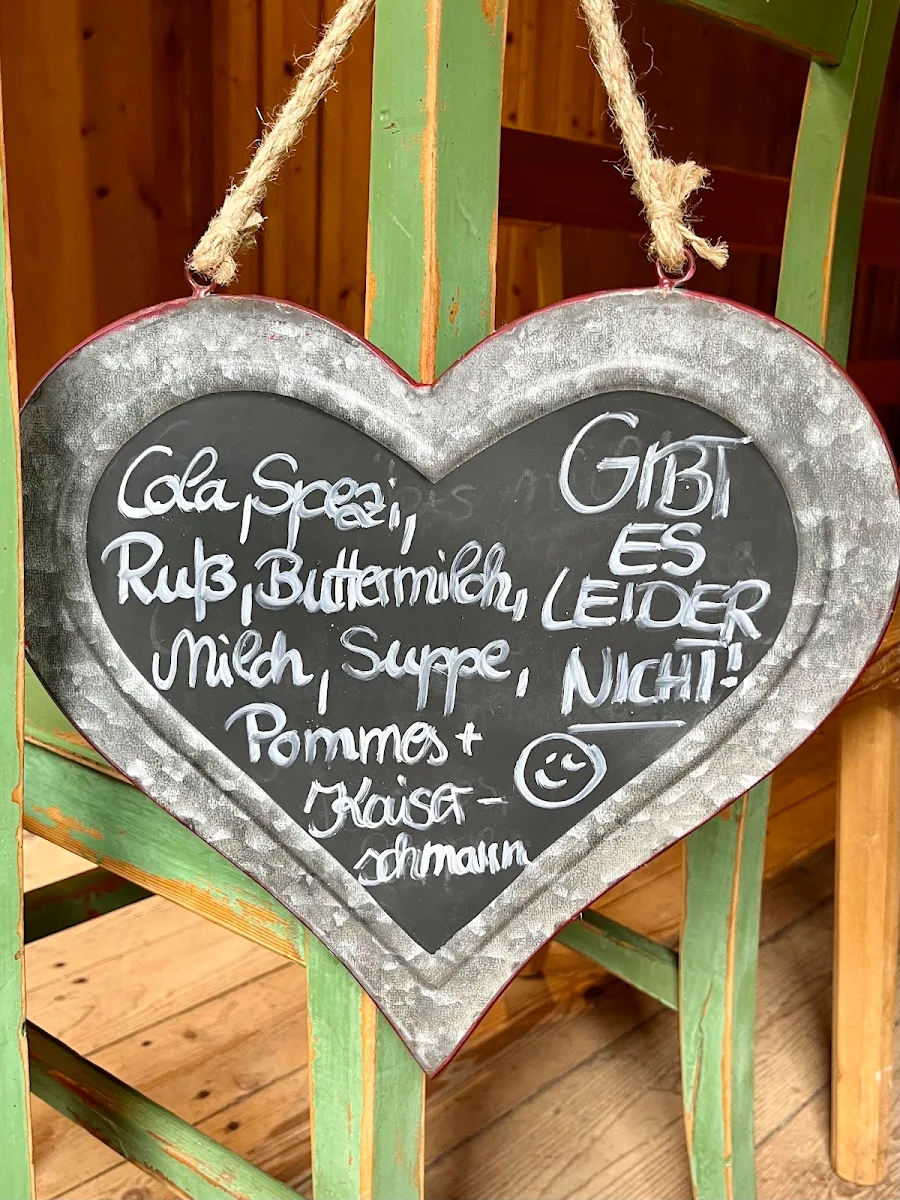 Cola, Spezi,
Ruß, Buttermilch,
Milch, Suppe,
Pommes +
Kaiser-
schmarrn
GIBT
ES
LEIDER
NICHT!